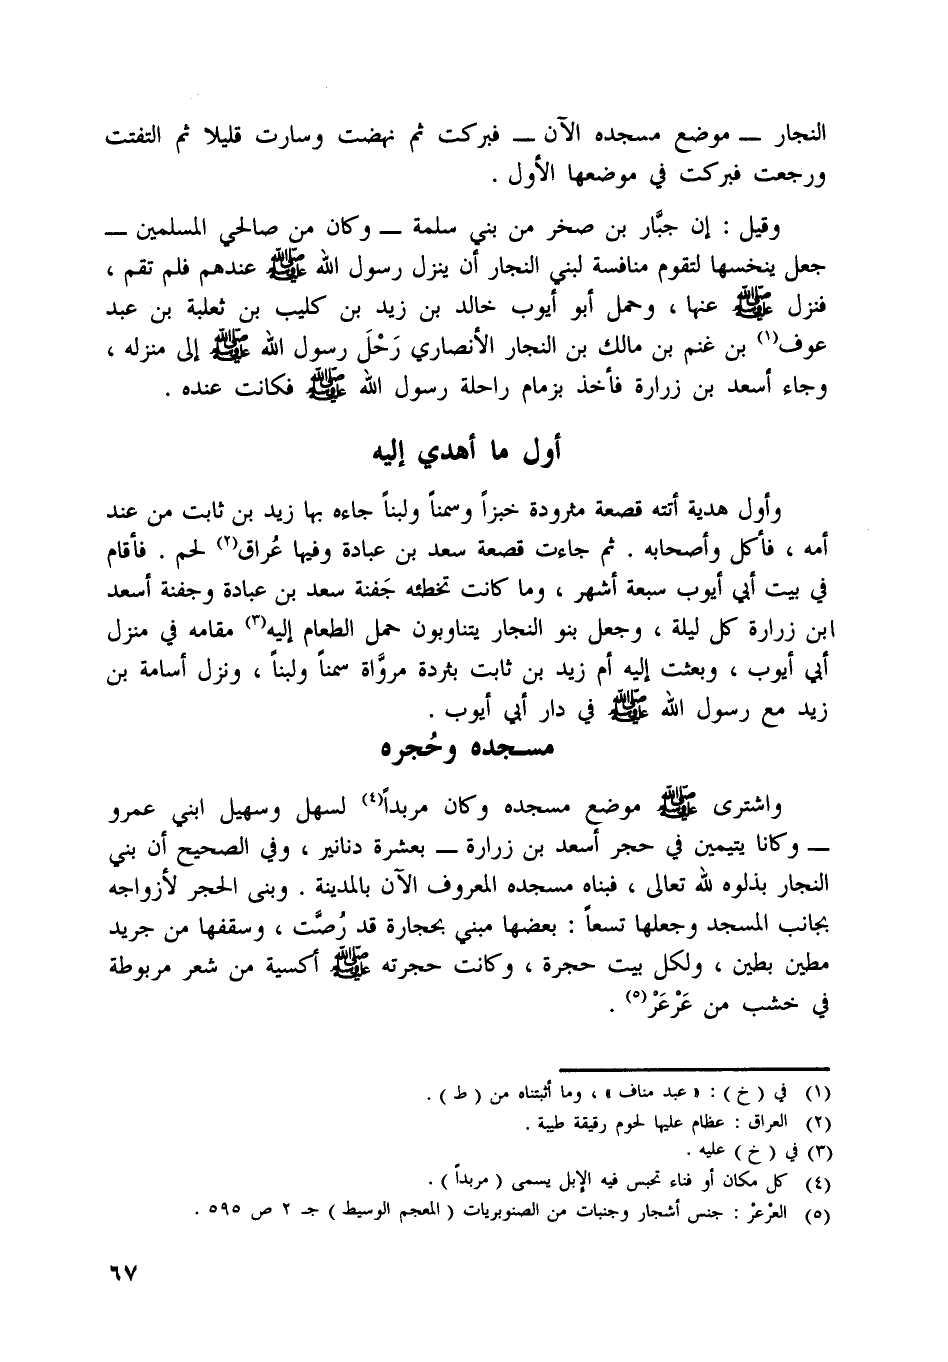 النجار ــ موضع مسجده الآن ــ فبركت ثم نهضت وسارت قليلا ثم التفتت
ورجعت فبركت في موضعها الأول .
وقيل : إن جبَّار بن صخر من بني سلمة ــ وكان من صالحي المسلمين ــ
جعل ينخسها لتقوم منافسة لبني النجار أن ينزل رسول الله ﷺ عندهم فلم تقم ،
فنزل ﷺ عنها ، وحمل أبو أيوب خالد بن زيد بن كليب بن ثعلبة بن عبد
عوف(١) بن غنم بن مالك بن النجار الأنصاري رَحْلَ رسول الله ﷺ إلى منزله ،
وجاء أسعد بن زرارة فأخذ بزمام راحلة رسول الله ﷺ فكانت عنده .
أول ما أهدي إليه
وأول هدية أتته قصعة مثرودة خبزاً وسمناً ولبناً جاءه بها زيد بن ثابت من عند
أمه ، فأكل وأصحابه . ثم جاءت قصعة سعد بن عبادة وفيها عُراق(٢) لحم . فأقام
في بيت أبي أيوب سبعة أشهر ، وما كانت تخطئه جَفنة سعد بن عبادة وجفنة أسعد
ابن زرارة كل ليلة ، وجعل بنو النجار يتناوبون حمل الطعام إليه(٣) مقامه في منزل
أبي أيوب ، وبعثت إليه أم زيد بن ثابت بثردة مروَّاة سمناً ولبناً ، ونزل أسامة بن
زيد مع رسول الله ﷺ في دار أبي أيوب .
مسجده وحُجره
واشترى ﷺ موضع مسجده وكان مربداً(٤) لسهل وسهيل ابني عمرو
ــ وكانا يتيمين في حجر أسعد بن زرارة ــ بعشرة دنانير ، وفي الصحيح أن بني
النجار بذلوه لله تعالى ، فبناه مسجده المعروف الآن بالمدينة . وبنى الحجر لأزواجه
بجانب المسجد وجعلها تسعاً : بعضها مبني بحجارة قد رُصَّت ، وسقفها من جريد
مطين بطين ، ولكل بيت حجرة ، وكانت حجرته ﷺ أكسية من شعر مربوطة
في خشب من عَرْعَرْ(٥) .
(١) في ( خ ) : « عبد مناف » ، وما أثبتناه من ( ط ) .
(٢) العراق : عظام عليها لحوم رقيقة طيبة .
(٣) في ( خ ) عليه .
(٤) كل مكان أو فناء تحبس فيه الإبل يسمى ( مربداً ) .
(٥) العرْعرْ : جنس أشجار وجنبات من الصنوبريات ( المعجم الوسيط ) جـ ٢ ص ٥٩٥ .
٦٧